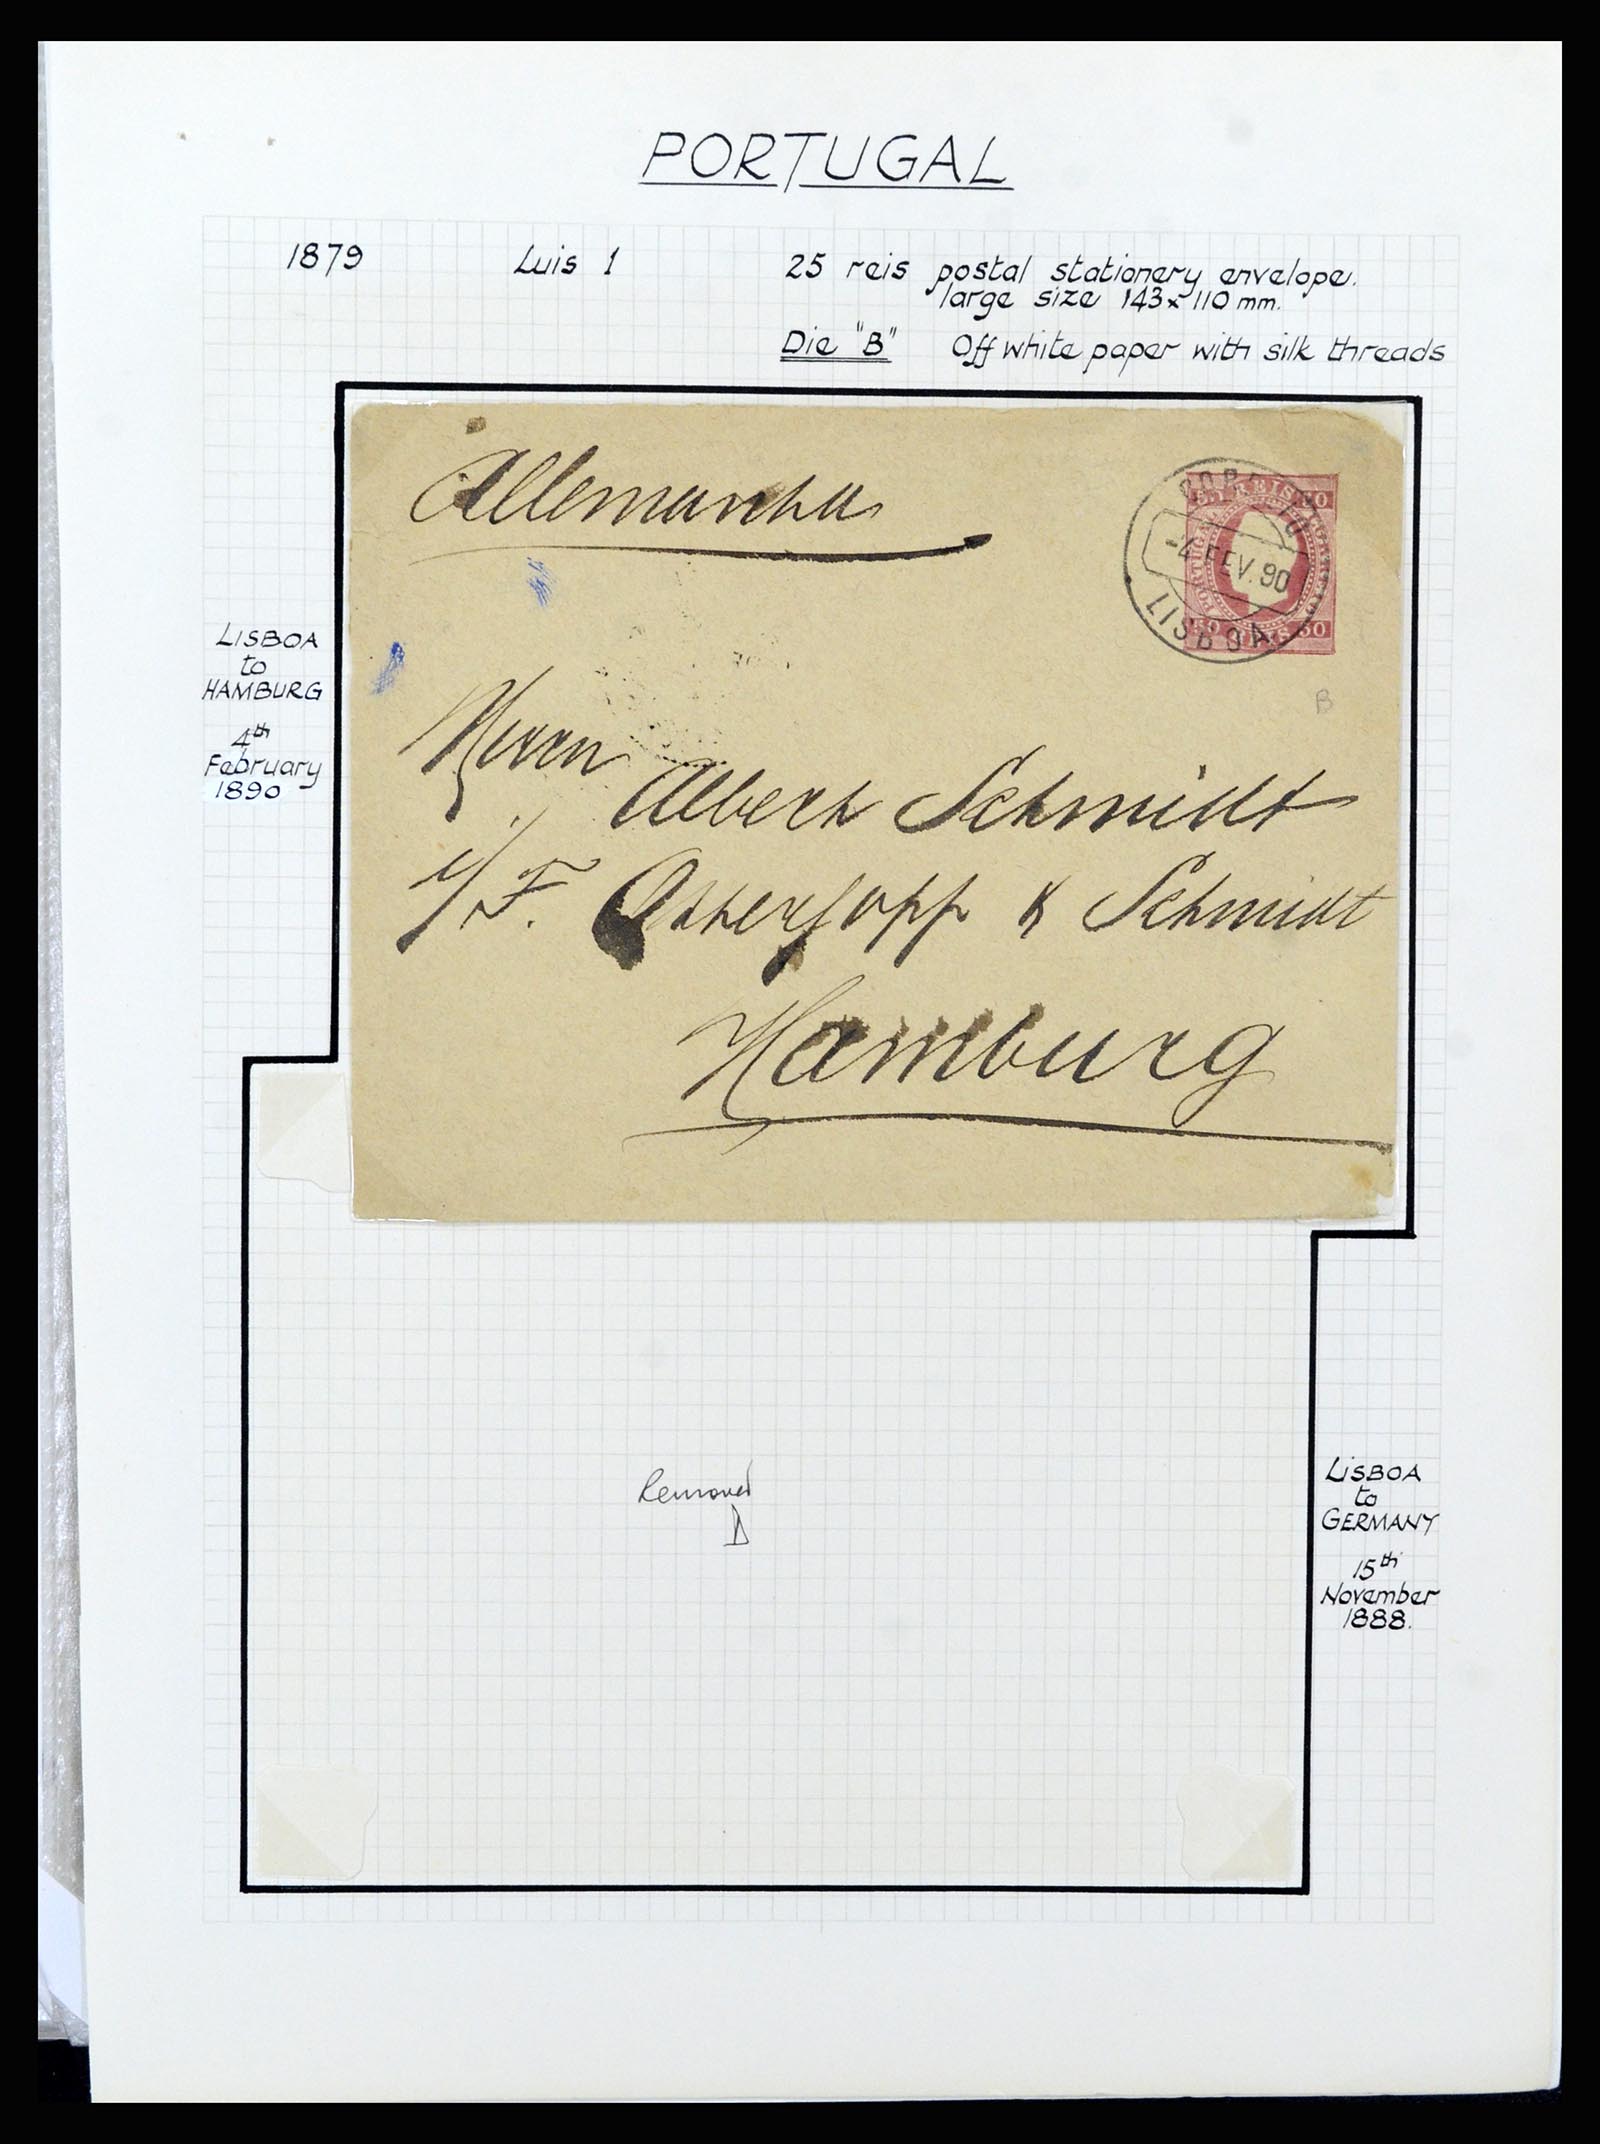 PORTUGAL
1879 Luis 1 25 reis postal stationery envelope.
large size 143 x 110 mm.
Die "B" Off white paper with silk threads
Allemanha
CORREIO
-4 FEV. 90
LISBOA
REIS
PORTUGAL
50
B
LISBOA
to
HAMBURG
4th
February
1890
Herrn
Albert Schmidt
F.
& Schmidt
Hamburg
Removed
D
LISBOA
to
GERMANY
15th
November
1888.